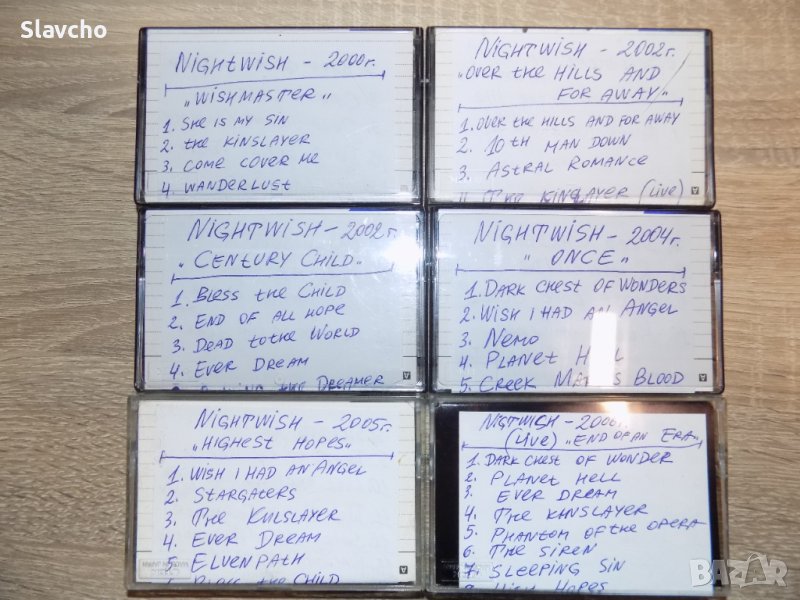 Slavcho
NIGHTWISH - 2000г.
„WISHMASTER"
1. SHE IS MY SIN
2. THE KINSLAYER
3. COME COVER ME
4. WANDERLUST
NIGHTWISH - 2002г.
„OVER THE HILLS AND
FOR AWAY"
1. OVER THE HILLS AND FOR AWAY
2. 10TH MAN DOWN
3. ASTRAL ROMANCE
THE KINSLAYER (LIVE)
NIGHTWISH - 2002г.
„CENTURY CHILD"
1. BLESS THE CHILD
2. END OF ALL HOPE
3. DEAD TO THE WORLD
4. EVER DREAM
THE DREAMER
NIGHTWISH - 2004г.
„ONCE"
1. DARK CHEST OF WONDERS
2. WISH I HAD AN ANGEL
3. NEMO
4. PLANET HELL
5. CREEK MARY'S BLOOD
NIGHTWISH - 2005г.
„HIGHEST HOPES"
1. WISH I HAD AN ANGEL
2. STARGATERS
3. THE KULSLAYER
4. EVER DREAM
5. ELVENPATH
THE CHILD
NIGTWISH - 2006г.
(LIVE) „END OF AN ERA"
1. DARK CHEST OF WONDER
2. PLANET HELL
3. EVER DREAM
4. THE KINSLAYER
5. PHANTOM OF THE OPERA
6. THE SIREN
7. SLEEPING SIN
HIGH HOPES
BAZAR